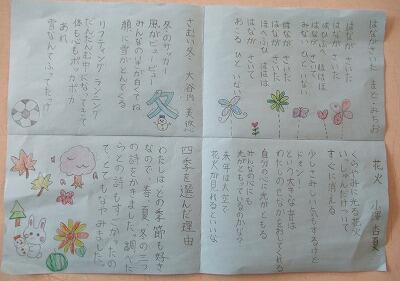 はながさいた まど・みちお
はなが さいた
はなが さいた
はひふへ ほほほ
はなが さいて
みない ひと いない
はなが さいた
はなが さいた
ほへふひ ははは
はなが さいて
おこる ひと いない
さむい冬 大谷内
冬のサッカー
風がビュービュー
みんなのいきが白くてね
顔に雪がとんでくる
リフティング ランニング
だんだんむ中になってきて
体も心もポカポカ
あれ
雪なんてふってたっけ
冬
花火 小澤 杏夏
くらやみに光る花火
いくしゅんだけついて
すぐに消える
少しさみしい気もするけど
ドォン!
という大きな音は
わたしのせなかをおしてくれる
自分の心に光がともる
みんなの心にも
光がともっているのかな?
来年は大空で
花火が見れるといいな
四季を選んだ理由
わたしは、どの季節も好き
なので、春、夏、冬の三つ
の詩をかきました。調べた
らどの詩もすごかったの
で、とてもなやみました。